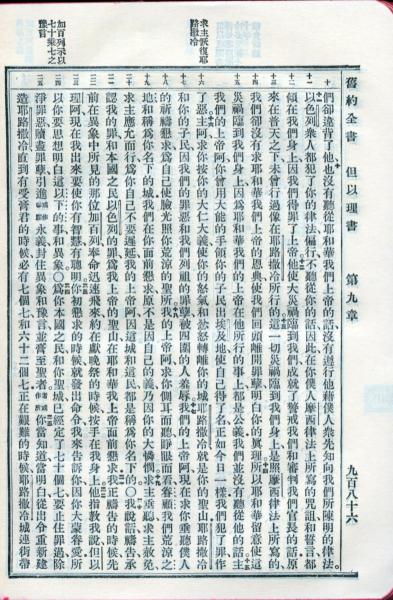 舊約全書 但以理書 第九章 九百八十六
求主恢復耶
路撒冷
加百列示以
七十來七之
們卻違背了他也沒有聽從耶和華我們上帝的話沒有遵行他藉僕人衆先知向我們所陳明的律法
以色列衆人都犯了你的律法偏行不聽從你的話因此在你僕人摩西律法上所寫的咒詛和誓言都
傾在我們身上因我們得罪了上帝他使大災禍臨到我們成就了警戒我們和審判我們官長的話原
來在普天之下未曾行過像在耶路撒冷所行的這一切災禍臨到我們身上是照摩西律法上所寫的
我們卻沒有求耶和華我們上帝的恩典使我們回頭離開罪孽明白你的眞理所以耶和華留意使這
災禍臨到我們身上因爲耶和華我們的上帝在他所行的事上都是公義我們並沒有聽從他的話主
我們的上帝阿你曾用大能的手領你的子民出埃及地使自己得了名正如今日一樣我們犯了罪作
了惡主阿求你按你的大仁大義使你的怒氣和忿怒轉離你的城耶路撒冷就是你的聖山耶路撒冷
和你的子民因我們的罪惡和我們列祖的罪孽被四圍的人羞辱我們的上帝阿現在求你垂聽僕人
的祈禱懇求爲自己使臉光照你荒涼的聖所我的上帝阿求你側耳而聽睜眼而看眷顧我們荒涼之
地和稱爲你名下的城我們在你面前懇求原不是因自己的義乃因你的大憐憫求主垂聽求主赦免
求主應允而行爲你自己不要遲延我的上帝阿因這城和這民都是稱爲你名下的〇我說話禱告承
認我的罪和本國之民以色列的罪爲我上帝的聖山在耶和華我上帝面前懇求我正禱告的時候先
前在異象中所見的那位加百列奉命迅速飛來約在獻晚祭的時候按手在我身上他指教我說但以
理阿現在我出來要使你有智慧有聰明你初懇求的時候就發出命令我來告訴你因你大蒙眷愛所
以你要思想明白這以下的事和異象〇爲你本國之民和你聖城已經定了七十個七要止住罪過除
淨罪惡贖盡罪孽引進永義封住異象和豫言並膏至聖者你當知道當明白從出令重新建
造耶路撒冷直到有受膏君的時候必有七個七和六十二個七正在艱難的時候耶路撒冷城連街帶